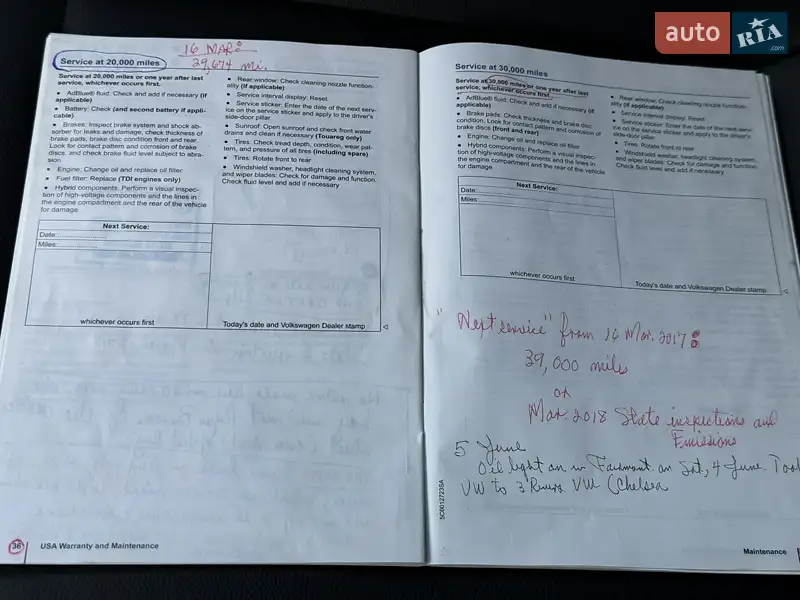 auto RIA .com
16 MAR:
29,674 mi.
Service at 20,000 miles
Service at 20,000 miles or one year after last
service, whichever occurs first.
• AdBlue® fluid: Check and add if necessary (if
applicable)
• Battery: Check (and second battery if appli-
cable)
• Brakes: Inspect brake system and shock ab-
sorber for leaks and damage, check thickness of
brake pads, brake disc condition front and rear.
Look for contact pattern and corrosion of brake
discs, and check brake fluid level subject to abra-
sion
• Engine: Change oil and replace oil filter
• Fuel filter: Replace (TDI engines only)
• Hybrid components: Perform a visual inspec-
tion of high-voltage components and the lines in
the engine compartment and the rear of the vehicle
for damage.
• Rear window: Check cleaning nozzle function-
ality (if applicable)
• Service interval display: Reset
• Service sticker: Enter the date of the next serv-
ice on the service sticker and apply to the driver's
side-door pillar
• Sunroof: Open sunroof and check front water
drains and clean if necessary (Touareg only)
• Tires: Check tread depth, condition, wear pat-
tern, and pressure of all tires (including spare)
• Tires: Rotate front to rear
• Windshield washer, headlight cleaning system,
and wiper blades: Check for damage and function.
Check fluid level and add if necessary
Next Service:
Date:
Miles:
whichever occurs first
Today's date and Volkswagen Dealer stamp
36
USA Warranty and Maintenance
Service at 30,000 miles
Service at 30,000 miles or one year after last
service, whichever occurs first.
• AdBlue® fluid: Check and add if necessary (if
applicable)
• Brake pads: Check thickness and brake disc
condition. Look for contact pattern and corrosion of
brake discs (front and rear)
• Engine: Change oil and replace oil filter
• Hybrid components: Perform a visual inspec-
tion of high-voltage components and the lines in
the engine compartment and the rear of the vehicle
for damage.
• Rear window: Check cleaning nozzle function-
ality (if applicable)
• Service interval display: Reset
• Service sticker: Enter the date of the next serv-
ice on the service sticker and apply to the driver's
side-door pillar
• Tires: Rotate front to rear
• Windshield washer, headlight cleaning system,
and wiper blades: Check for damage and function.
Check fluid level and add if necessary
Next Service:
Date:
Miles:
whichever occurs first
Today's date and Volkswagen Dealer stamp
"Next service" from 16 Mar. 2017:
39,000 miles
or
Mar. 2018 State inspections and
Emissions
5 June
Oil light on in Fairmont on Sat, 4 June. Took
VW to 3 Rivers VW (Chelsea
5C6012723SA
Maintenance